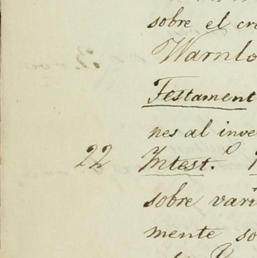 sobre el cr
Warnlo
Testament
nes al inve
22 Intest.º
sobre vari
mente so